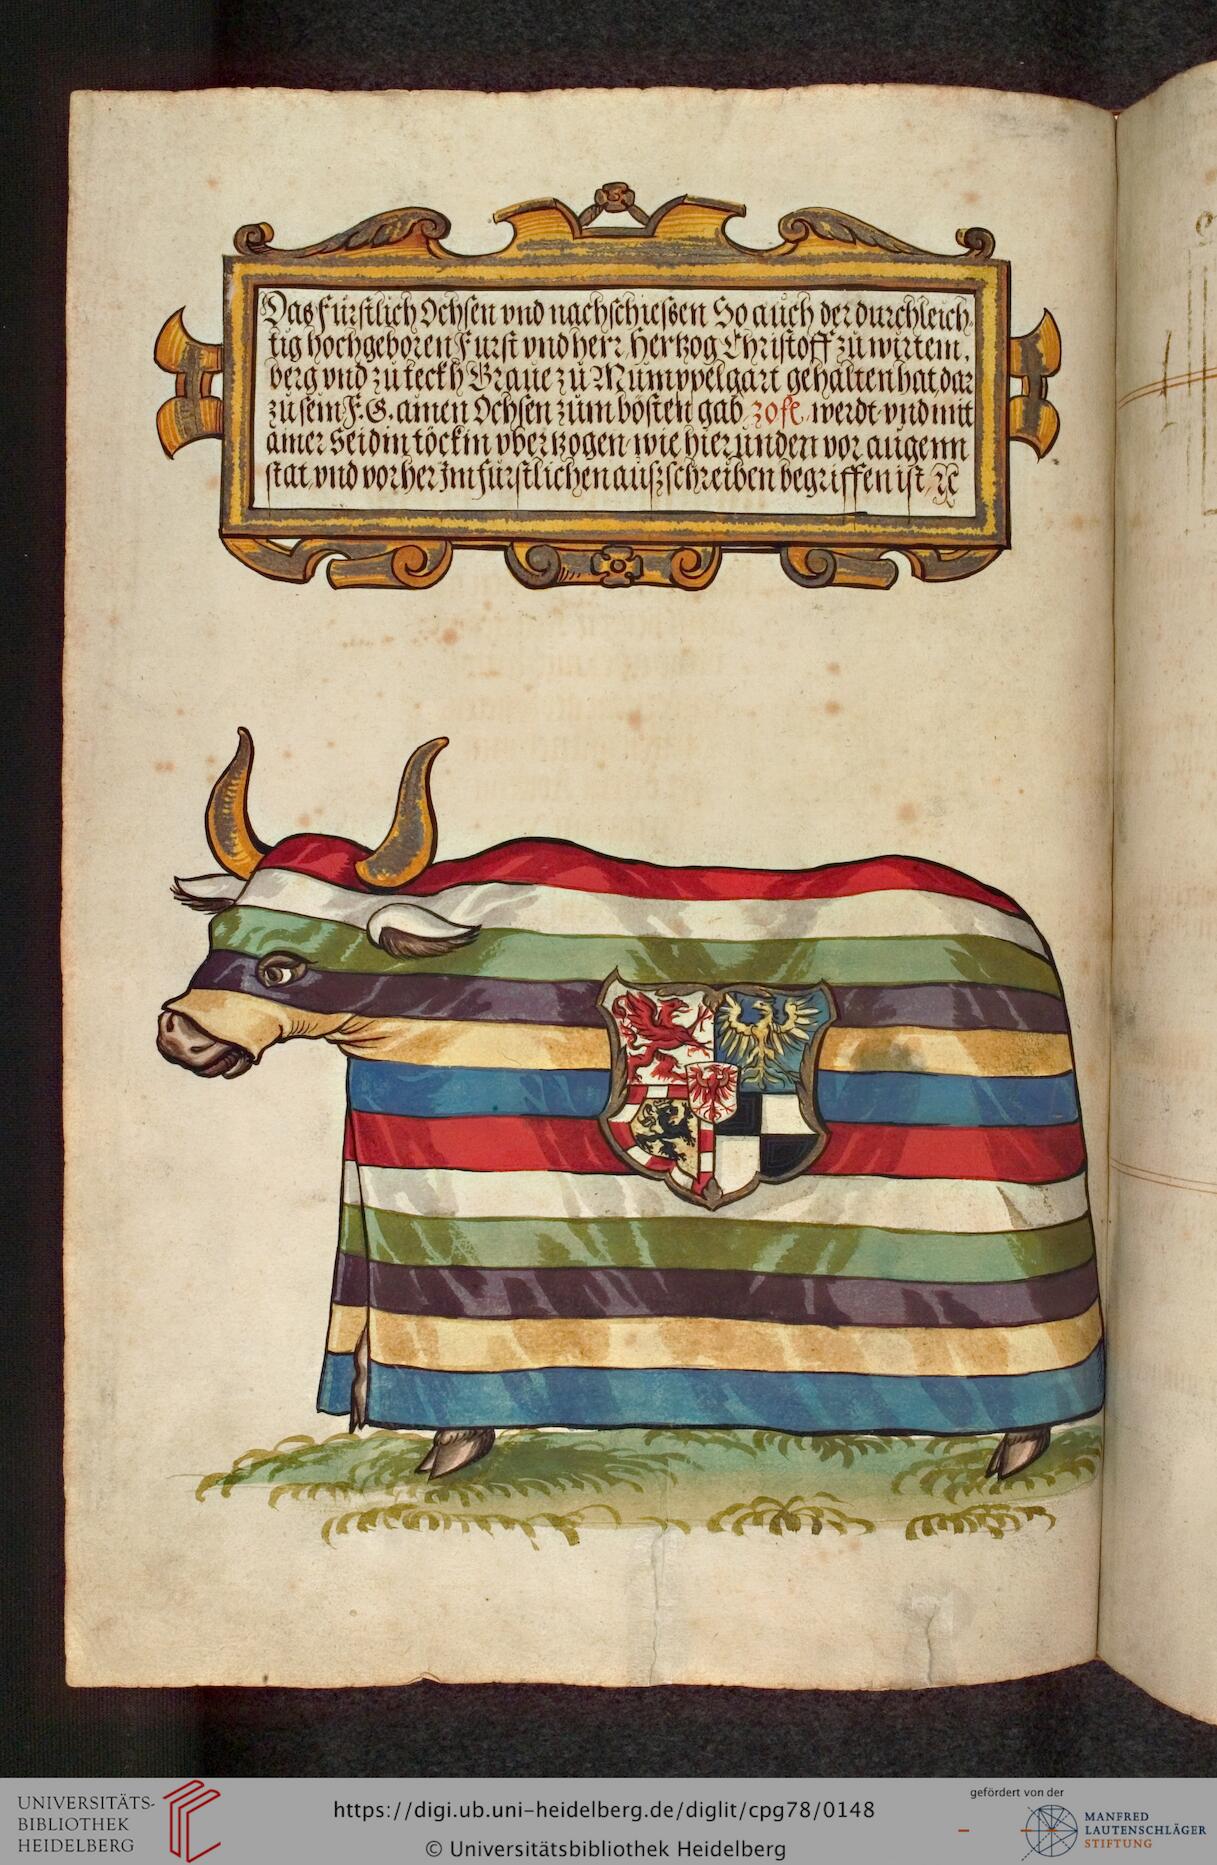 Das fürstlich Ochsen vnd nachschiessen So auch der durchleich
tig hochgeboren Furst vnd herr, Hertzog Christoff zu wirtem,
berg vnd zu teckh Graue zu Mümppelgart gehalten hat, dar
zu sein F. G. ainen Ochsen zum bösten gab, werdt vnd mit
ainer Seidin töckin vbertzogen wie hierunden vor augenn
stat, vnd vorher Im fürstlichen ausschreiben begriffen ist,
UNIVERSITÄTS-
BIBLIOTHEK
HEIDELBERG
https://digi.ub.uni-heidelberg.de/diglit/cpg78/0148
© Universitätsbibliothek Heidelberg
gefördert von der
MANFRED
LAUTENSCHLÄGER
STIFTUNG